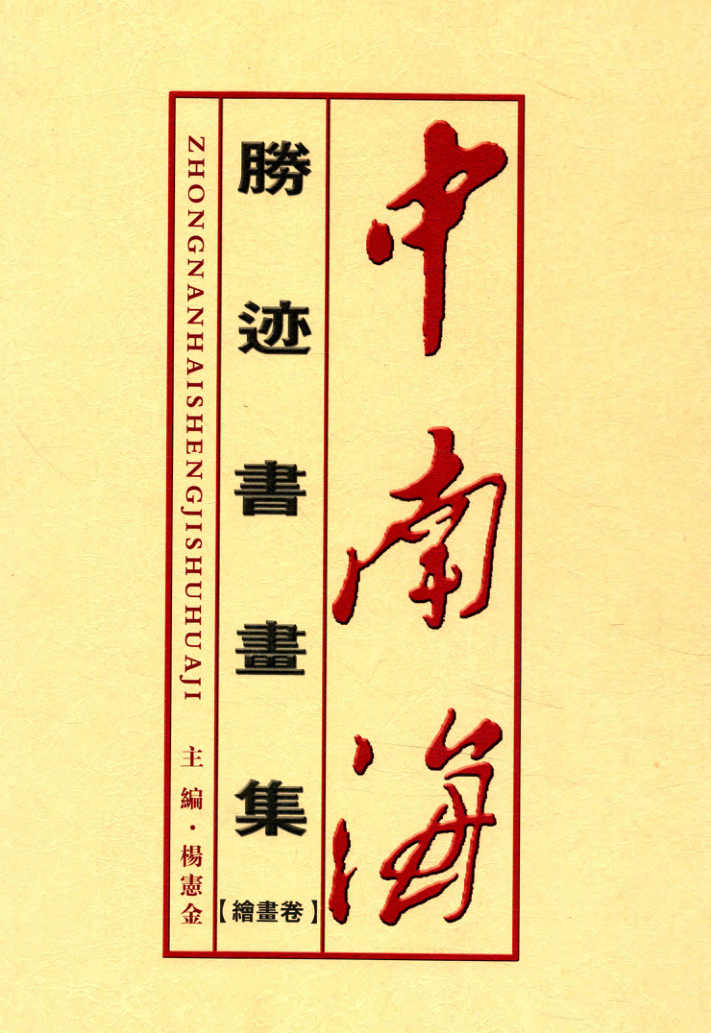 中南海
勝迹書畫集
【繪畫卷】
ZHONGNANHAISHENGJISHUHUAJI
主編·楊憲金